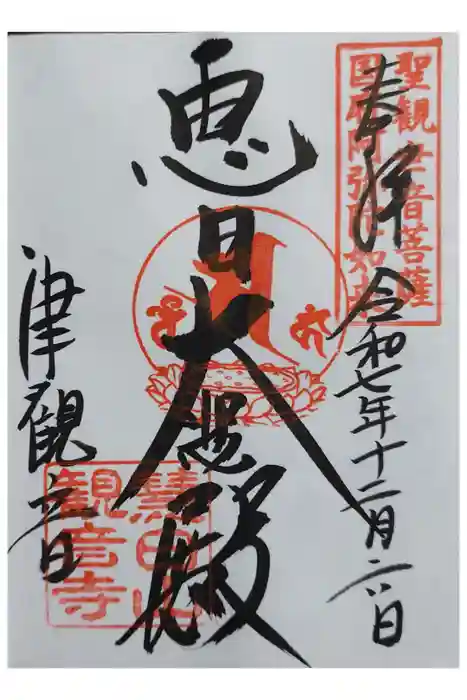 奉拝
令和七年十二月二八日
聖観世音菩薩
国府阿弥陀如来
恵日大悲殿
津観音
慧日山
観音寺